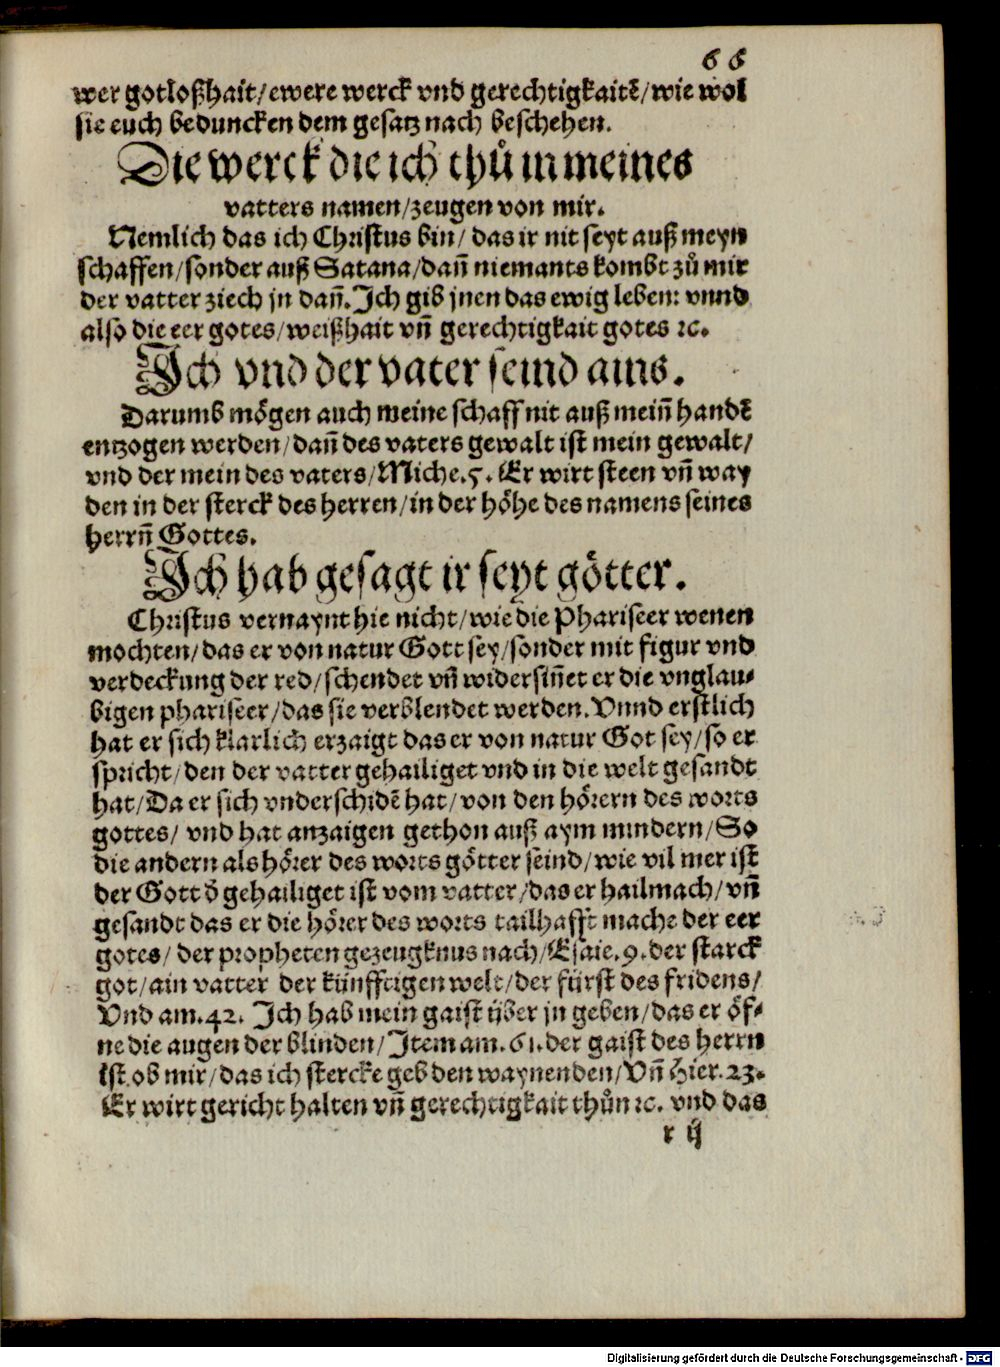 66
wer gotloßhait/ewere werck vnd gerechtigkaitẽ/wie wol
sie euch beduncken dem gesatz nach beschehen.
Die werck die ich thůin meines
vatters namen/zeugen von mir.
Nemlich das ich Christus bin/das ir nit seyt auß meyn
schaffen/sonder auß Satana/dañ niemants kombt zů mir
der vatter ziech jn dañ. Ich gib jnen das ewig leben: vnnd
also die eer gotes/weißhait vñ gerechtigkait gotes ꝛc.
Ich vnd der vater seind ains.
Darumb mögen auch meine schaff nit auß meiñ handẽ
entzogen werden/dañ des vaters gewalt ist mein gewalt/
vnd der mein des vaters/Miche.5. Er wirt steen vñ way
den in der sterck des herren/in der höhe des namens seines
herrñ Gottes.
Ich hab gesagt ir seyt götter.
Christus vernaynt hie nicht/wie die Phariseer wenen
mochten/das er von natur Gott sey/sonder mit figur vnd
verdeckung der red/schendet vñ widersiñet er die vnglau-
bigen phariseer/das sie verblendet werden. Vnnd erstlich
hat er sich klarlich erzaigt das er von natur Got sey/so er
spricht/den der vatter gehailiget vnd in die welt gesandt
hat/Da er sich vnderschidẽ hat/von den hörern des worts
gottes/ vnd hat anzaigen gethon auß aym mindern/So
die andern als hörer des worts götter seind/wie vil mer ist
der Gott d̃ gehailiget ist vom vatter/das er hailmach/vñ
gesandt das er die hörer des worts tailhafft mache der eer
gotes/ der propheten gezeugknus nach/Esaie.9. der starck
got/ain vatter der künfftigen welt/der fürst des fridens/
Vnd am.42. Ich hab mein gaist über jn geben/das er öf-
ne die augen der blinden/Item am.61.der gaist des herrn
ist ob mir/das ich stercke geb den waynenden/Vñ Hier.23.
Er wirt gericht halten vñ gerechtigkait thůn ꝛc. vnd das
r ij
Digitalisierung gefördert durch die Deutsche Forschungsgemeinschaft - DFG